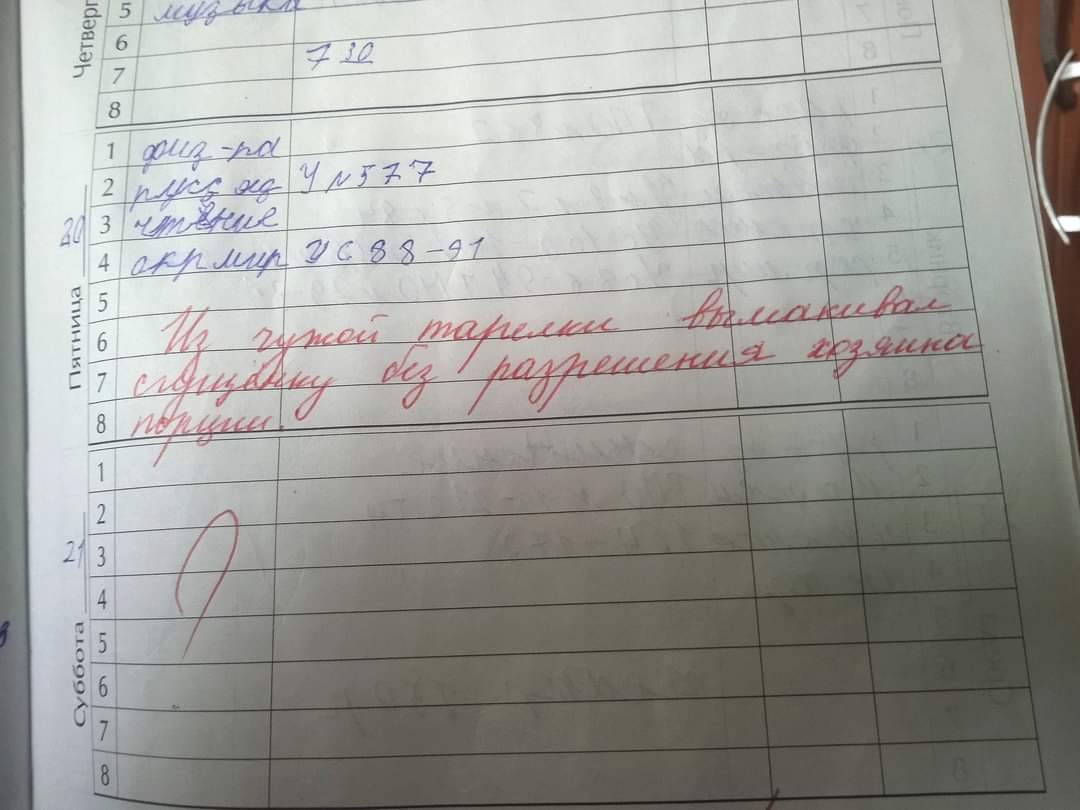 Четверг
5 музыка
6
7 30
7
8
Пятница 20
1 физ-ра
2 русс яз У N577
3 чтение
4 окр мир У С 88-91
5
6 Из чужой тарелки вымакивал
7 сгущёнку без разрешения хозяина
8 порции.
Суббота 21
1
2
3
4
5
6
7
8